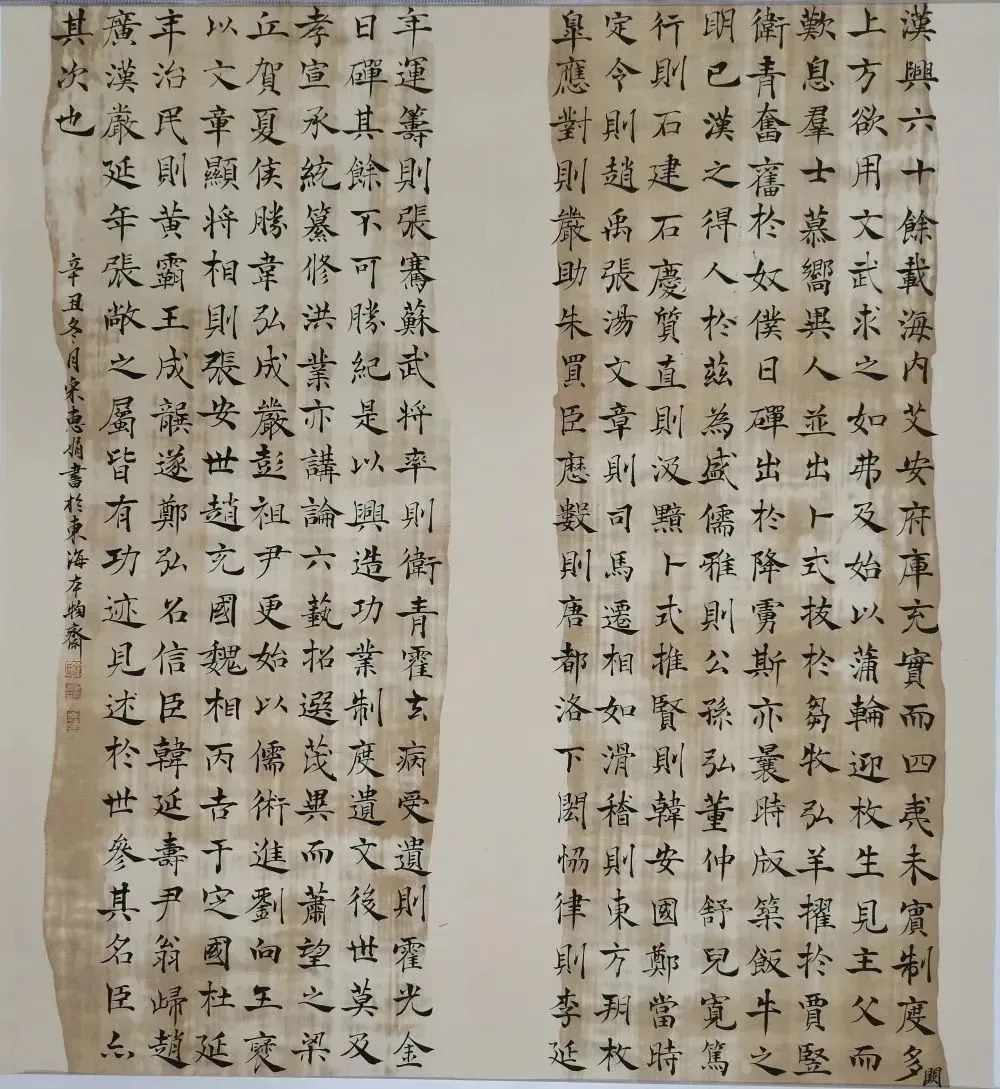 漢興六十餘載海内艾安府庫充實而四夷未賓制度多闕
上方欲用文武求之如弗及始以蒲輪迎枚生見主父而
歎息羣士慕嚮異人並出卜式拔於芻牧弘羊擢於賈豎
衛青奮於奴僕日磾出於降虜斯亦曩時版築飯牛之
明已漢之得人於茲為盛儒雅則公孫弘董仲舒兒寬篤
行則石建石慶質直則汲黯卜式推賢則韓安國鄭當時
定令則趙禹張湯文章則司馬遷相如滑稽則東方朔枚
臯應對則嚴助朱買臣歷數則唐都洛下閎恊律則李延
年運籌則張騫蘇武將率則衛青霍去病受遺則霍光金
日磾其餘不可勝紀是以興造功業制度遺文後世莫及
孝宣承統纂修洪業亦講論六藝招選茂異而蕭望之梁
丘賀夏侯勝韋弘成嚴彭祖尹更始以儒術進劉向王褒
以文章顯將相則張安世趙充國魏相丙吉于定國杜延
年治民則黄霸王成龔遂鄭弘名信臣韓延壽尹翁歸趙
廣漢嚴延年張敞之屬皆有功迹見述於世參其名臣亦
其次也
辛丑冬月宋惠娟書於東海本物齋